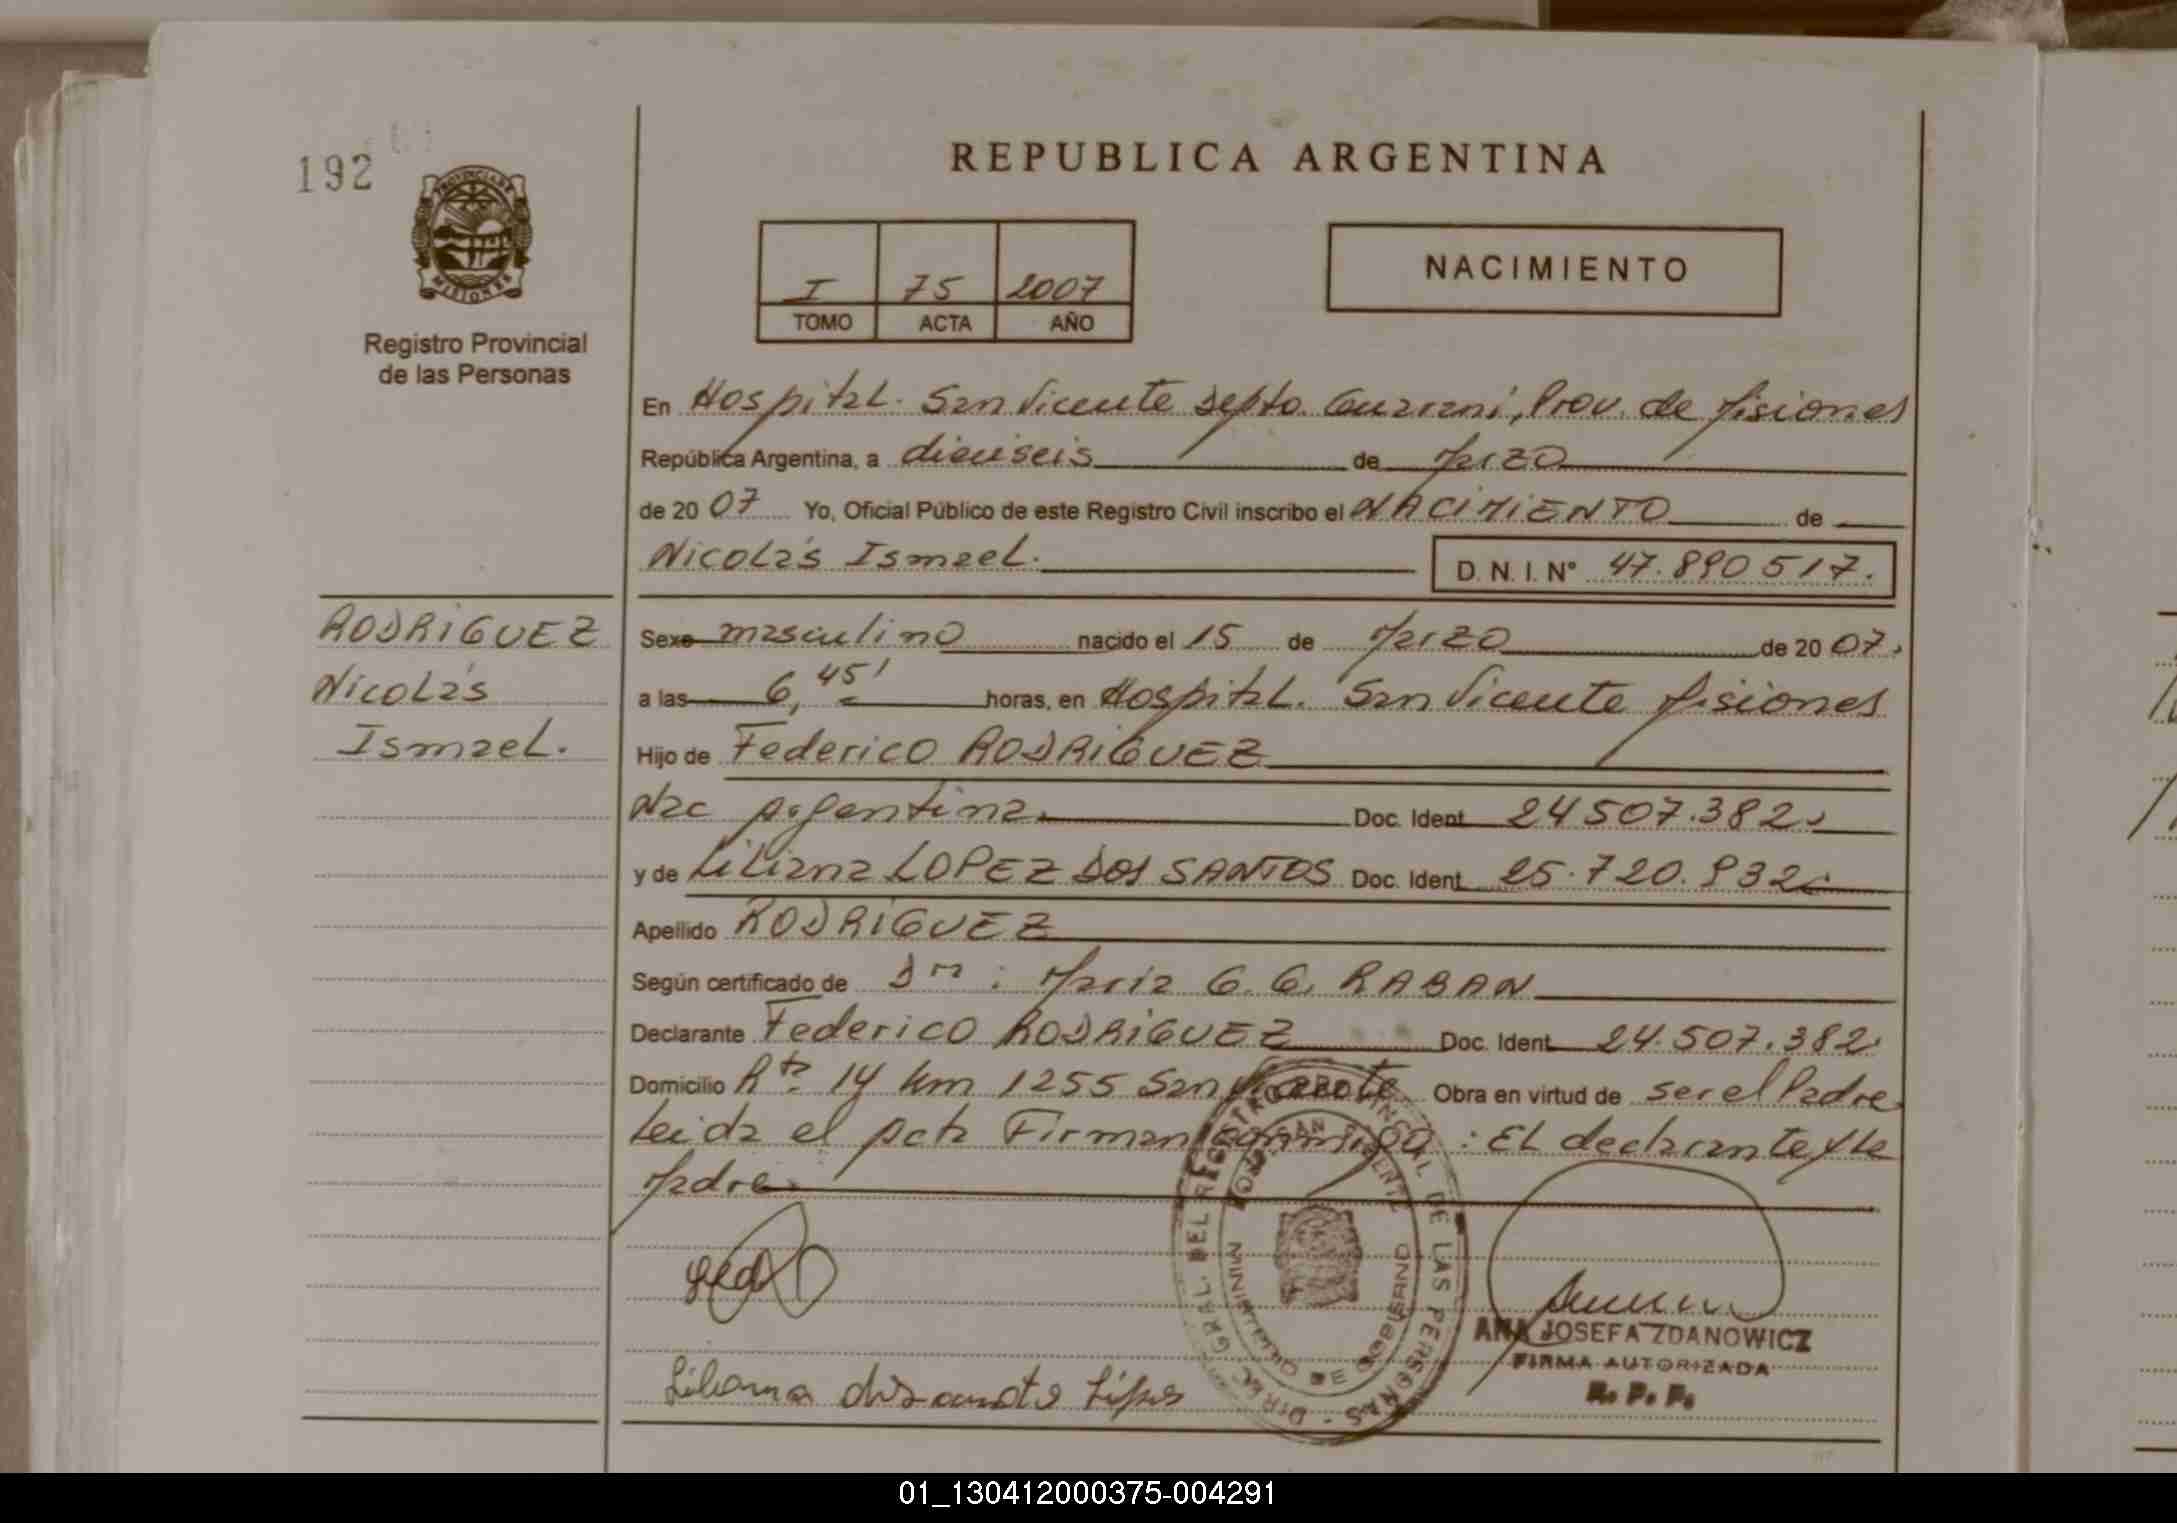 192
PROVINCIA DE
MISIONES
Registro Provincial
de las Personas
REPUBLICA ARGENTINA
I 75 2007
TOMO ACTA AÑO
NACIMIENTO
En Hospital. San Vicente Depto. Guaraní, Prov. de Misiones
República Argentina, a dieciseis de Marzo
de 2007 Yo, Oficial Público de este Registro Civil inscribo el NACIMIENTO de
Nicolás Ismael. D. N. I. N° 47.890517.
RODRIGUEZ
Nicolás
Ismael.
Sexo masculino nacido el 15 de Marzo de 2007.
a las 6,45' horas, en Hospital. San Vicente Misiones
Hijo de Federico RODRIGUEZ
Nac Argentina. Doc. Ident 24507.382.
y de Liliana LOPEZ DOS SANTOS Doc. Ident 25.720.932.
Apellido RODRIGUEZ
Según certificado de Dra: Maria G. G. RABAN
Declarante Federico RODRIGUEZ Doc. Ident 24.507.382
Domicilio Rta 14 km 1255 San Vicente Obra en virtud de ser el Padre
Leida el Acta Firman conmigo: El declarante y la
Madre.
DIREC. GRAL. DEL REGISTRO PROVINCIAL DE LAS PERSONAS
MINISTERIO DE GOBIERNO
ANA JOSEFA ZDANOWICZ
FIRMA AUTORIZADA
R. P. P.
Liliana
01_130412000375-004291